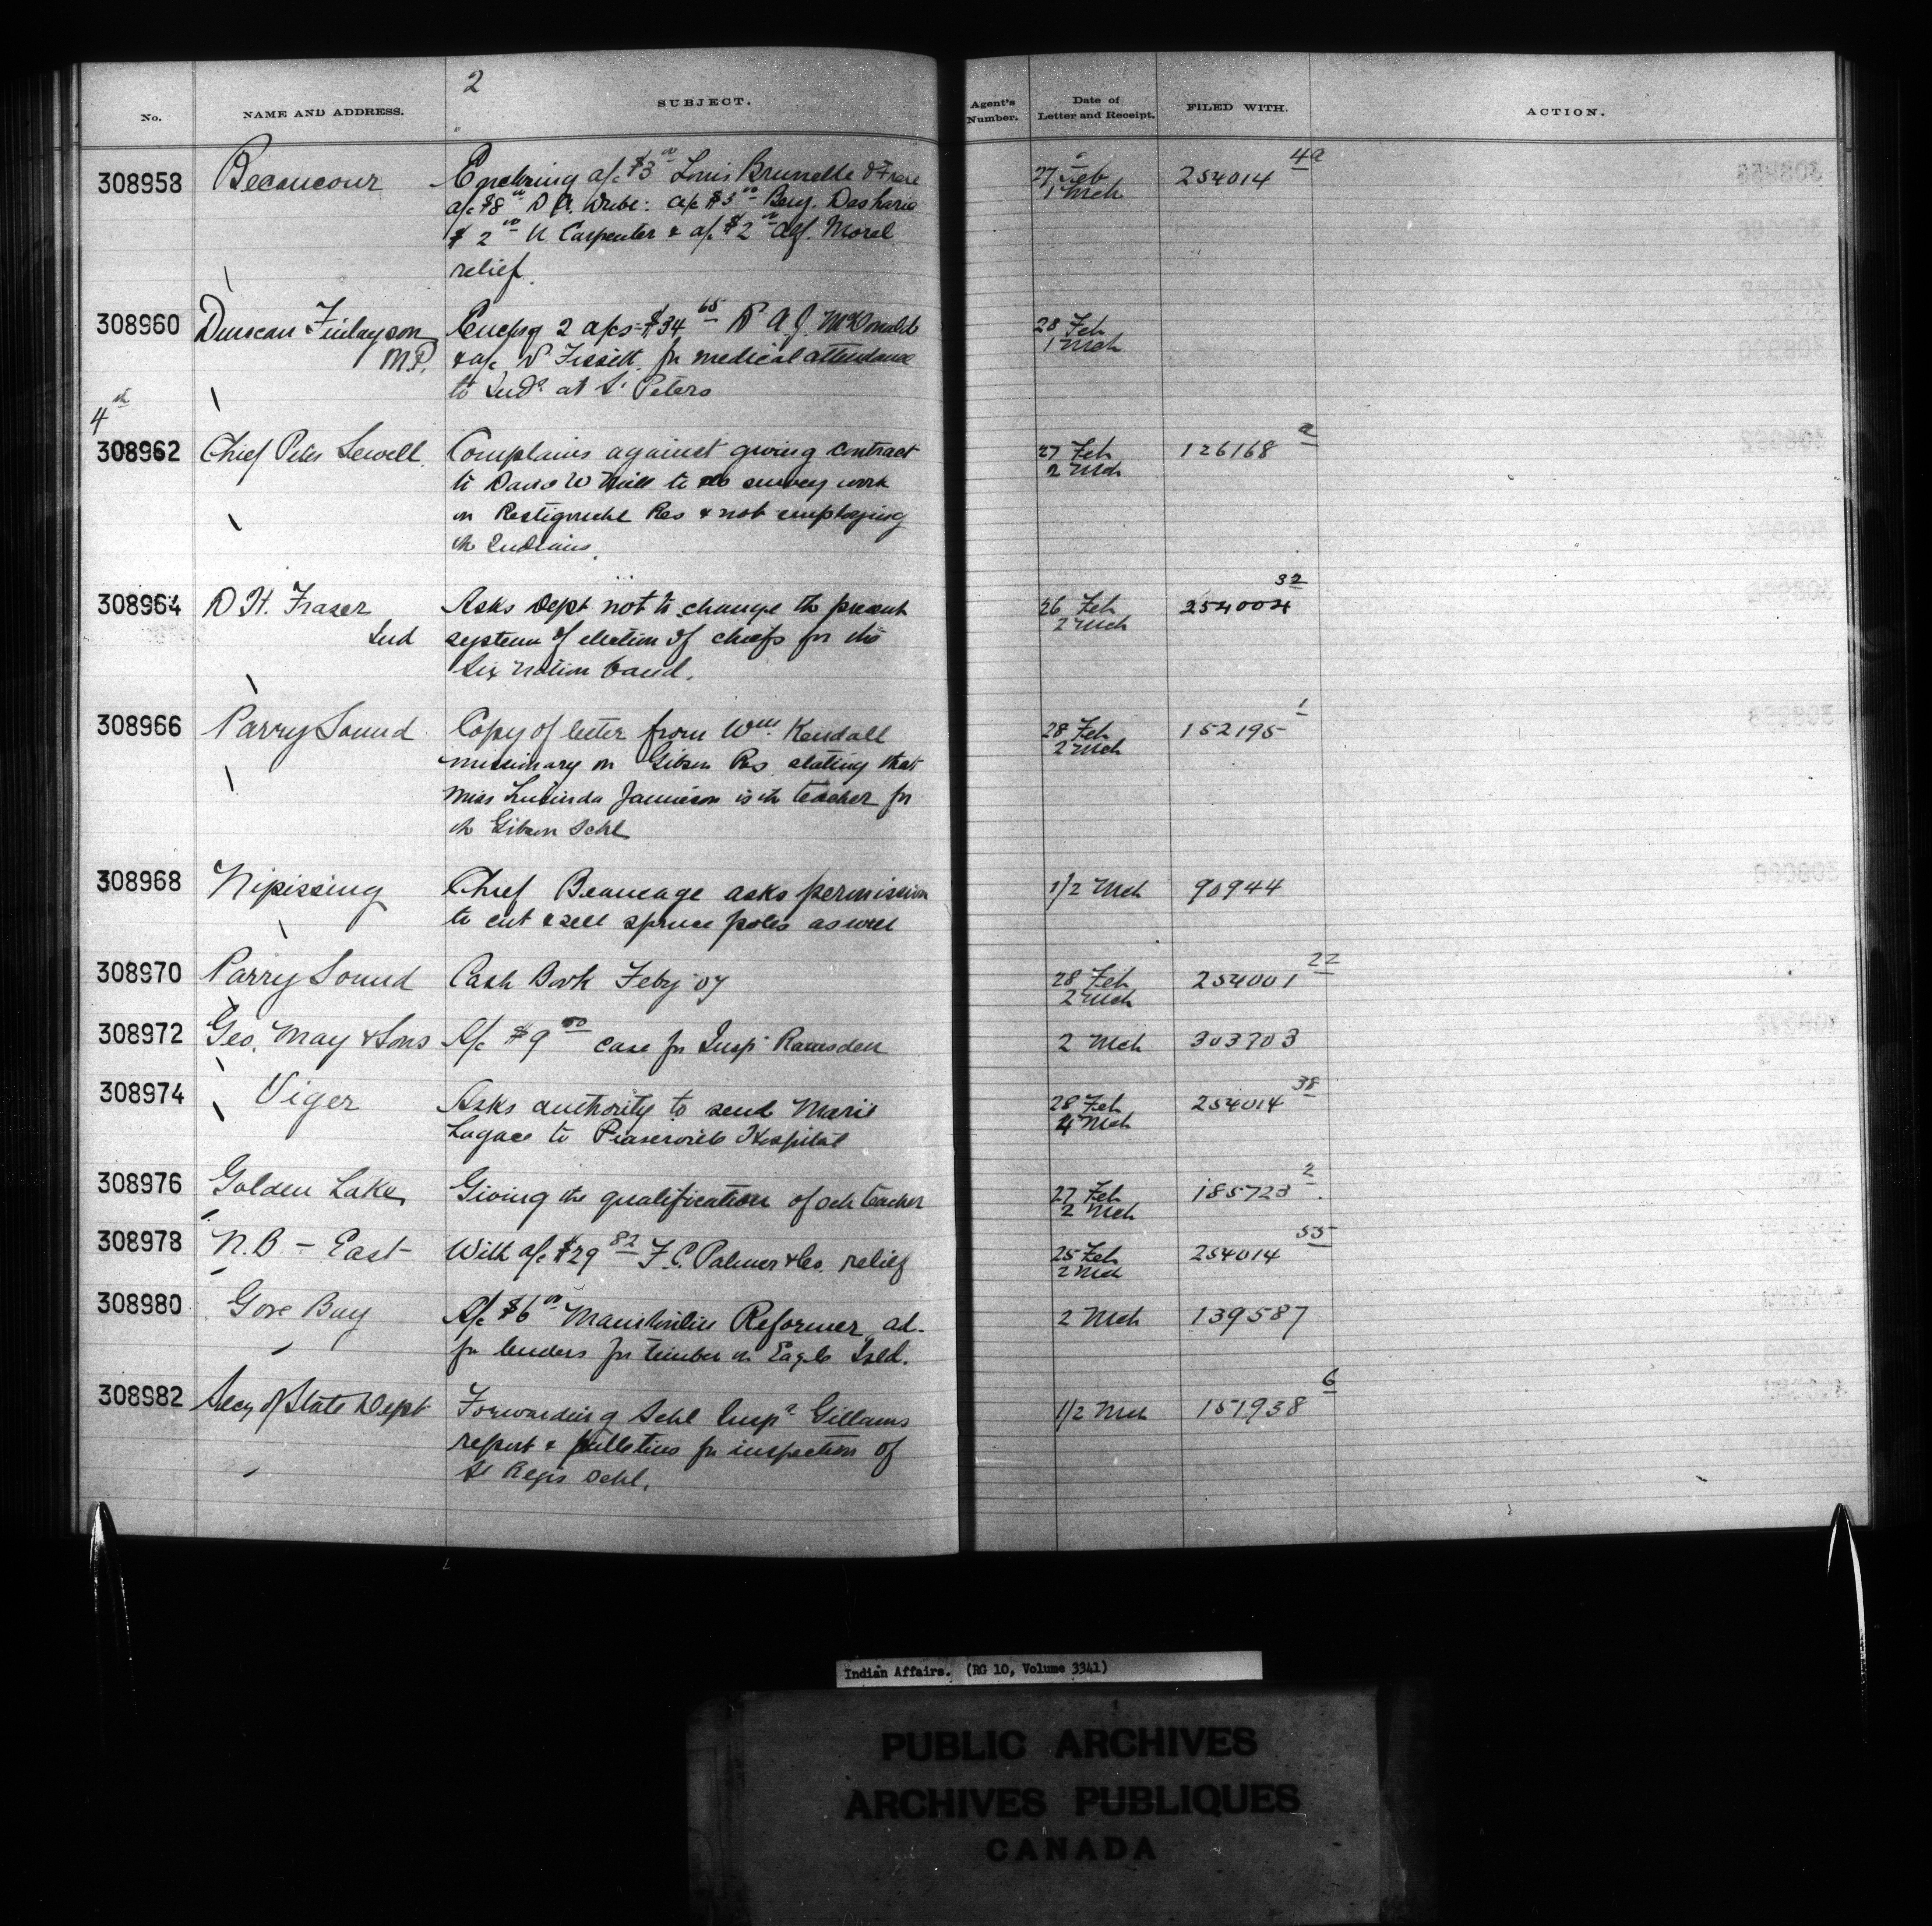 2
No. NAME AND ADDRESS. SUBJECT. Agent's Number. Date of Letter and Receipt. FILED WITH. ACTION.
308958 Becancour Enclosing a/c $3 00 Louis Brunelle & Frere 27 Feb 254014 4a
a/c $8 00 D A. Dube: a/c $5 00 Benj. Desharie 1 Mch
$ 2 00 N Carpenter & a/c $2 00 Alf. Morel
relief.
308960 Duncan Finlayson Enclsg 2 a/cs $34 65 D A J. McDonald 28 Feb
M.P. & a/c D Fissett for medical attendance 1 Mch
to Inds at St Peters
4th
308962 Chief Peter Sewell Complains against giving contract 27 Feb 126168 2
to David W Mill to do survey work 2 Mch
on Restigouche Res & not employing
the Indians.
308964 D H. Fraser Asks Dept not to change the present 26 Feb 254004 32
Ind system of election of chiefs for the 2 Mch
Six Nation band.
308966 Parry Sound Copy of letter from Wm. Kendall 28 Feb 152195 1
missionary on Gibson Res stating that 2 Mch
Miss Lucinda Jamieson is the teacher for
the Gibson Schl
308968 Nipissing Chief Beaucage asks permission 1/2 Mch 90944
to cut & sell spruce poles as well
308970 Parry Sound Cash Book Feby '07 28 Feb 254001 22
2 Mch
308972 Geo. May & Sons A/c $9 00 case for Insp Ramsden 2 Mch 303703
308974 Viger Asks authority to send Marie 28 Feb 254014 38
Lagace to Fraserville Hospital 4 Mch
308976 Golden Lake Giving the qualification of sch teacher 27 Feb 185723 2
2 Mch
308978 N.B. - East With a/c $29 82 F. C. Palmer & Co. relief 25 Feb 254014 55
2 Mch
308980 Gore Bay A/c $6 00 Manitoulin Reformer ad- 2 Mch 139587
for tenders for timber on Eagle Isld.
308982 Secy of State Dept Forwarding Schl Inspr Gillams 1/2 Mch 151938 6
report & bulletins for inspection of
St Regis Schl.
Indian Affairs. (RG 10, Volume 3341)
PUBLIC ARCHIVES
ARCHIVES PUBLIQUES
CANADA